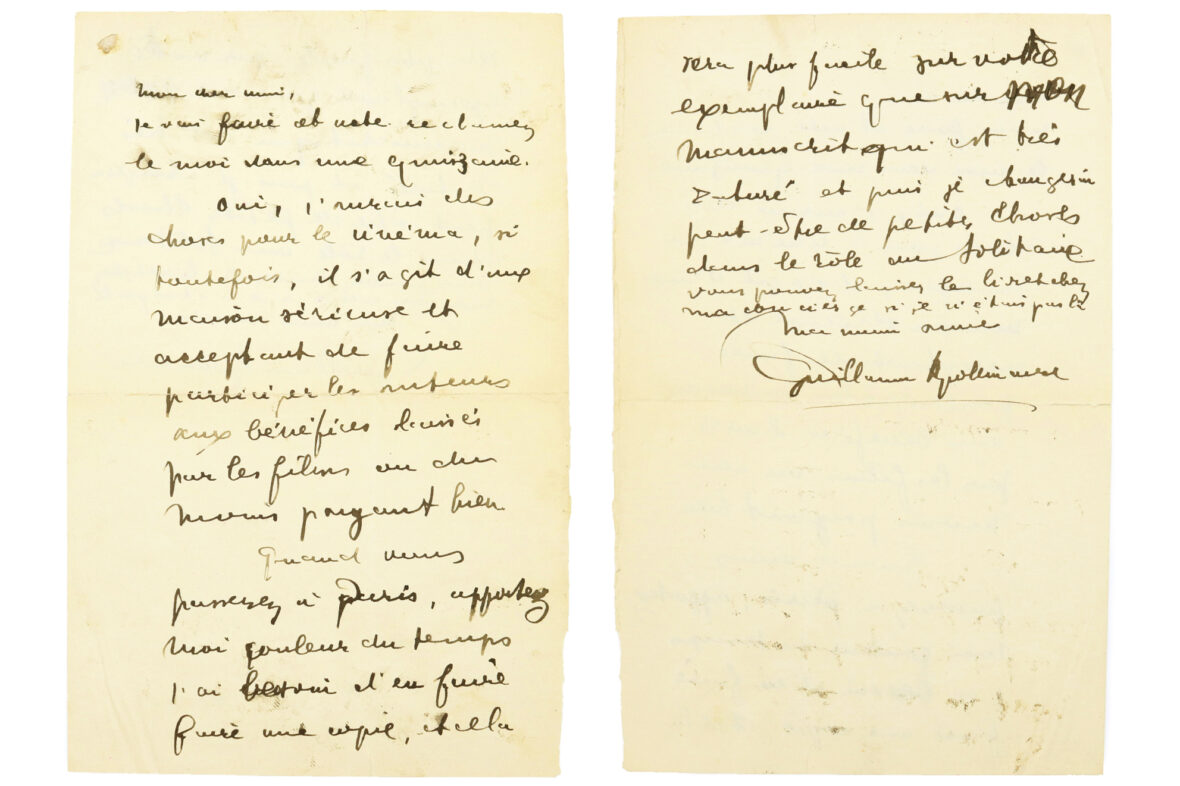 Mon cher ami,
je vais faire cet acte. réclamez
le moi dans une quinzaine.
Oui, j'aurai des
choses pour le cinéma, si
toutefois, il s'agit d'une
maison sérieuse et
acceptant de faire
participer les auteurs
aux bénéfices laissés
par les films ou du
moins payant bien
Quand vous
passerez à Paris, apportez
moi couleur du temps
j'ai besoin d'en faire
faire une copie, et elle
sera plus facile sur votre
exemplaire que sur mon
manuscrit qui est très
raturé et puis je changerai
peut-être de petites choses
dans le rôle du Solitaire
vous pouvez laisser le livret chez
ma concierge si je n'étais pas là
Ma main amie
Guillaume Apollinaire